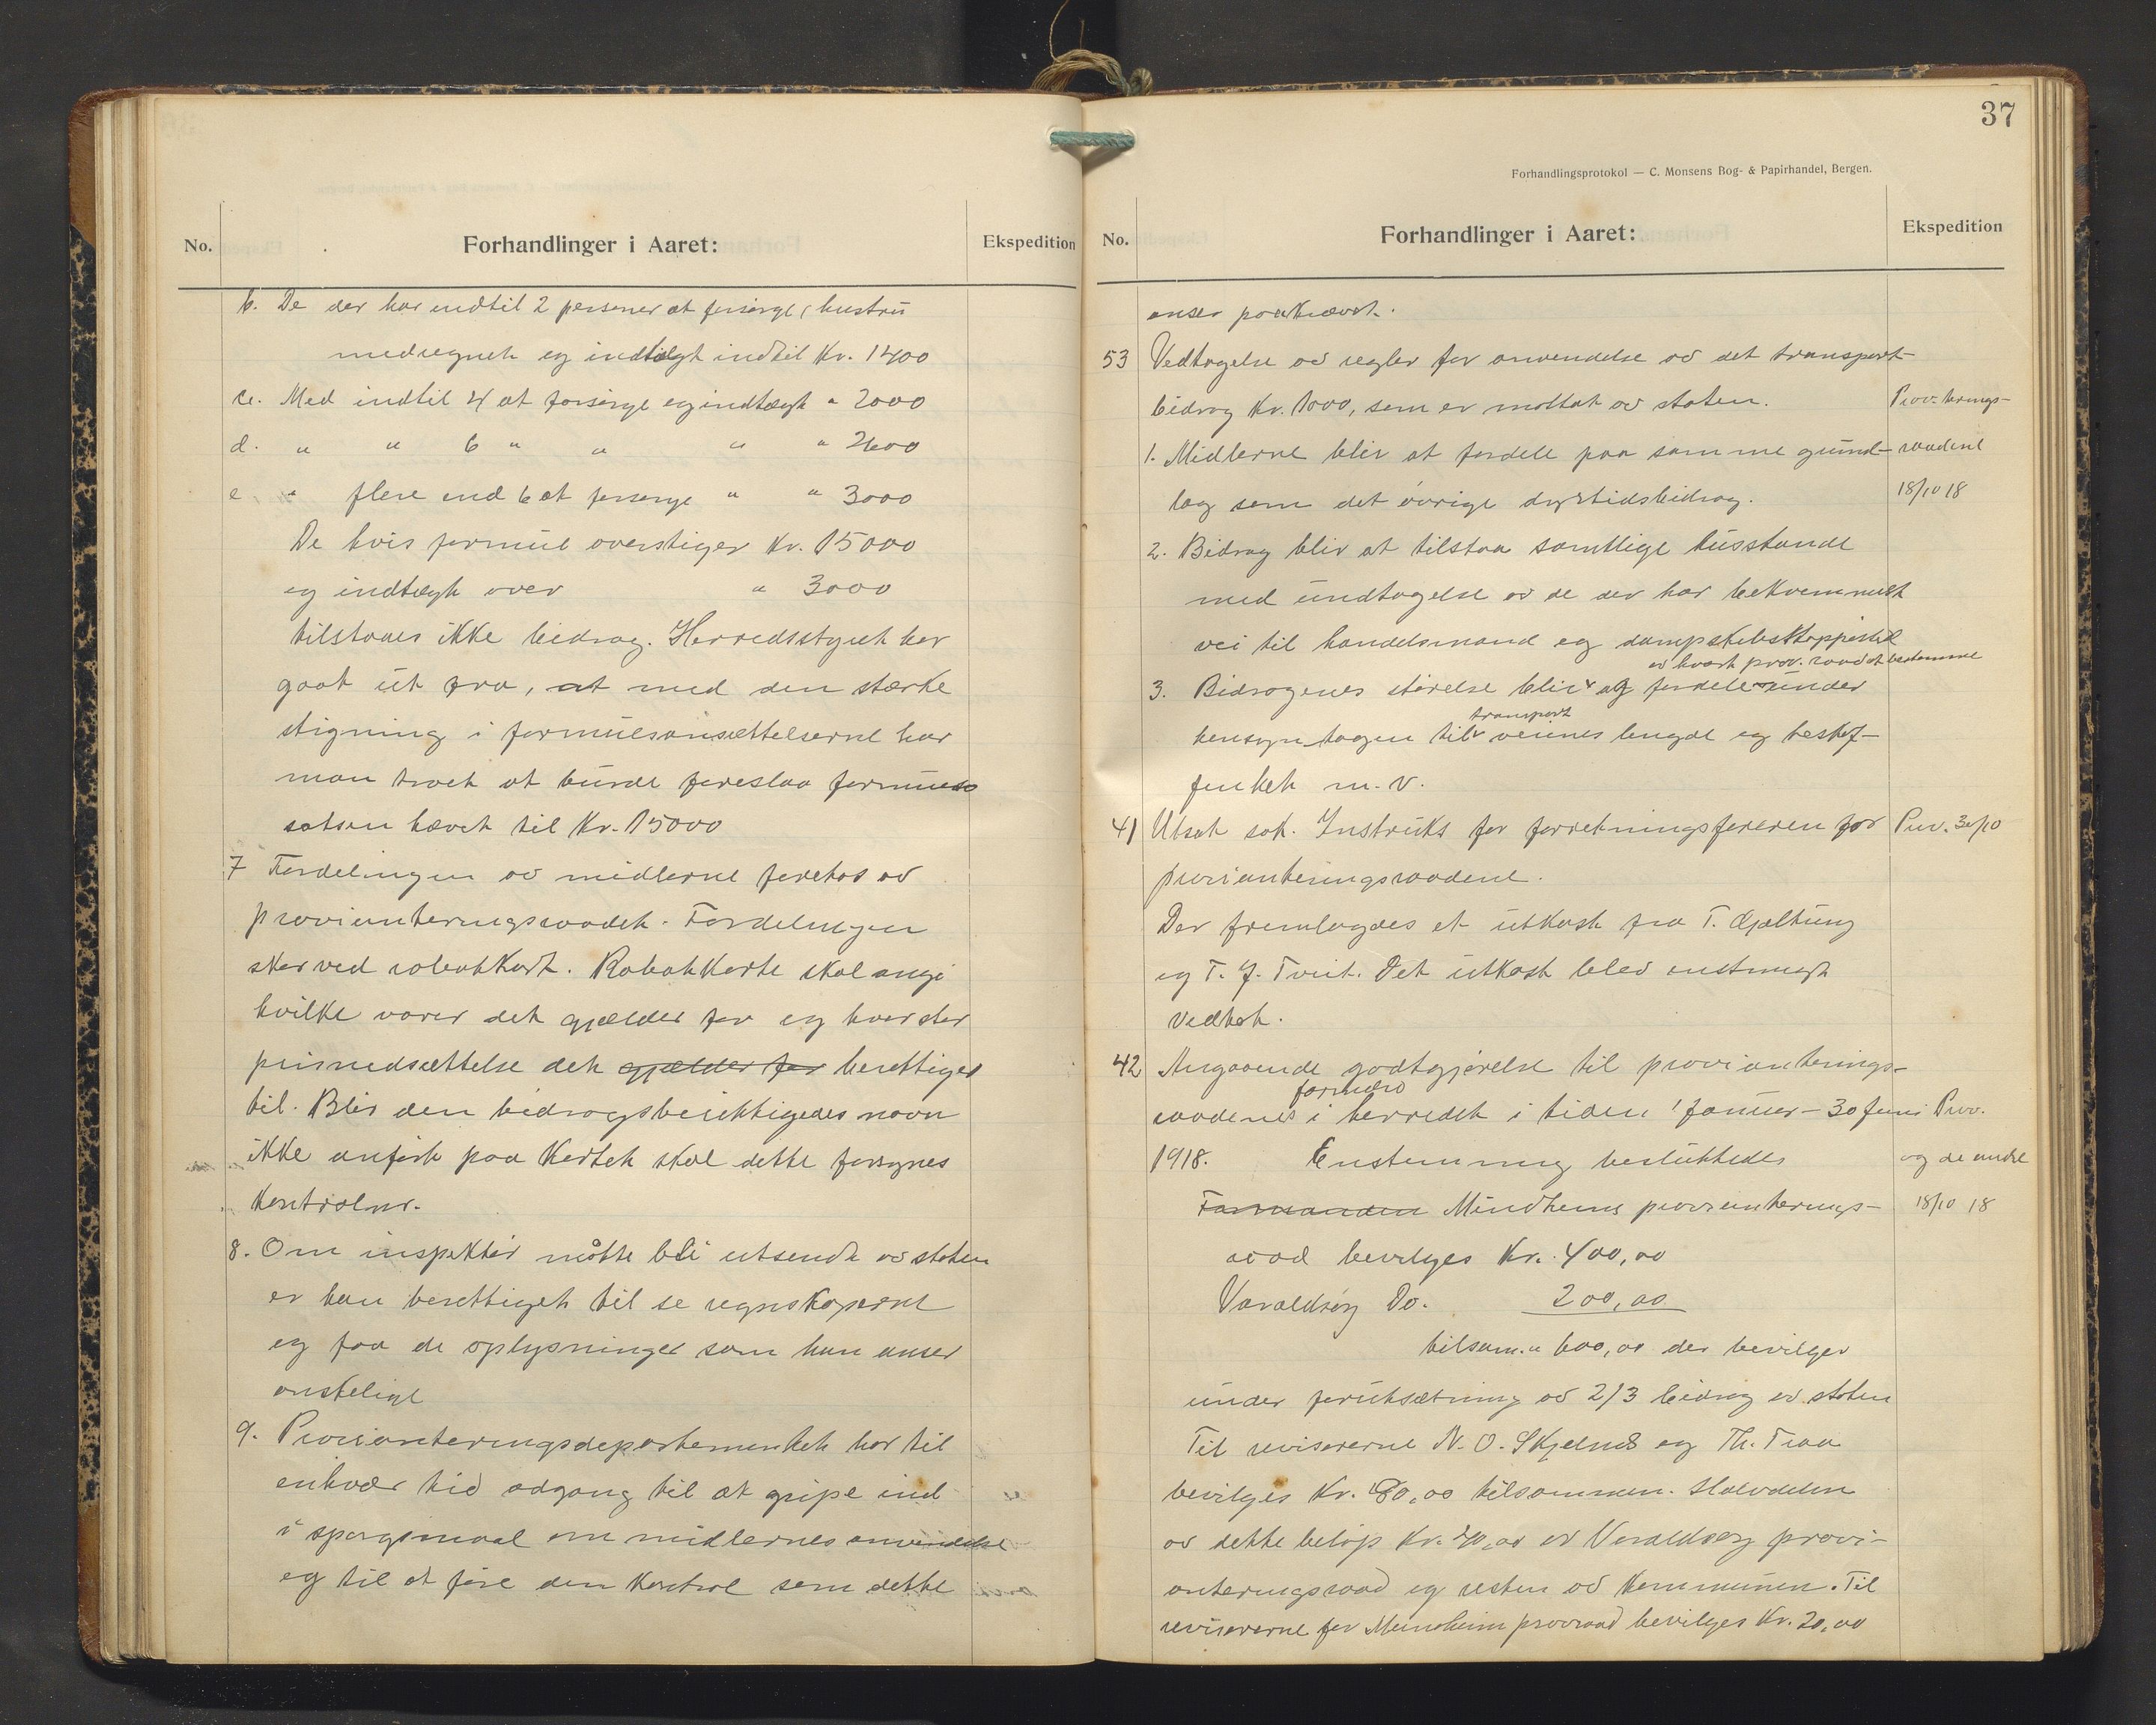 No. Forhandlinger i Aaret: Ekspedition
b. De der har indtil 2 personer at forsørge (hustru
medregnet og indtægt indtil Kr. 1400
c. Med indtil 4 at forsørge og indtægt " 2000
d. " " 6 " " " " 2600
e " flere end 6 at forsørge " " 3000
De hvis formue overstiger Kr. 15000
og indtægt over " 3000
tilstaaes ikke bidrag. Herredsstyret har
gaat ut fra, at med den stærke
stigning i formuesansættelserne har
man troet at burde foreslaa formues
satsen hævet til Kr. 15000
7 Fordelingen av midlerne foretas av
provianteringsraadet. Fordelingen
sker ved rabatkort. Rabatkorte skal angi
hvilke varer det gjælder for og hvor stor
prisnedsættelse det gjælder for berettiger
til. Blir den bidragsberettigedes navn
ikke anført paa Kortet skal dette forsynes
Kontrolnr.
8. Om inspektør måtte bli utsendt av staten
er han berettiget til se regnskaperne
og faa de oplysninger som han anser
ønskelige
9. Provianteringsdepartementet har til
enhver tid adgang til at gripe ind
i spørgsmaal om midlernes anvendelse
og til at føre den Kontrol som dette
37
Forhandlingsprotokol — C. Monsens Bog- & Papirhandel, Bergen.
No. Forhandlinger i Aaret: Ekspedition
anser paakrævet.
53 Vedtagelse av regler for anvendelse av det transport-
bidrag Kr. 1000, som er mottat av staten. Prov-terings-
1. Midlerne blir at fordele paa samme grund- raadene
lag som det øvrige dyrtidsbidrag. 18/10 18
2. Bidrag blir at tilstaa samtlige husstande
med undtagelse av de der har bekvemmest
vei til handelsmand og dampskibsstoppested
av hvert prov. raad at bestemme
3. Bidragenes størelse blir og fordeles under
transport
hensyn tagen til veiens lengde og beskaf-
fenhet m.v.
41 Utsat sak. Instruks for forretningsføreren for Prov. 30/10
provianteringsraadene.
Der fremlagdes et utkast fra T. Gjeltung
og T. J. Tveit. Det utkast blev enstemmigt
vedtat.
42 Angaaende godtgjørelse til provianterings-
formænd
raadenes i herredet i tiden 1 januar - 30 Juni Prov.
1918. Enstemmig besluttedes og de andre
Formanden Mundheims provianterings- 18/10 18
raad bevilges Kr. 400,00
Varaldsøy Do. 200,00
tilsam. " 600,00 der bevilges
under forutsætning av 2/3 bidrag av staten
Til revisorerne N. O. Skjelnes og Th. Traa
bevilges Kr. 80,00 tilsammen. Halvdelen
av dette beløp Kr. 40,00 av Varaldsøy provi-
anteringsraad og resten av Kommunen. Til
revisorerne for Mundheim provraad bevilges Kr. 20,00